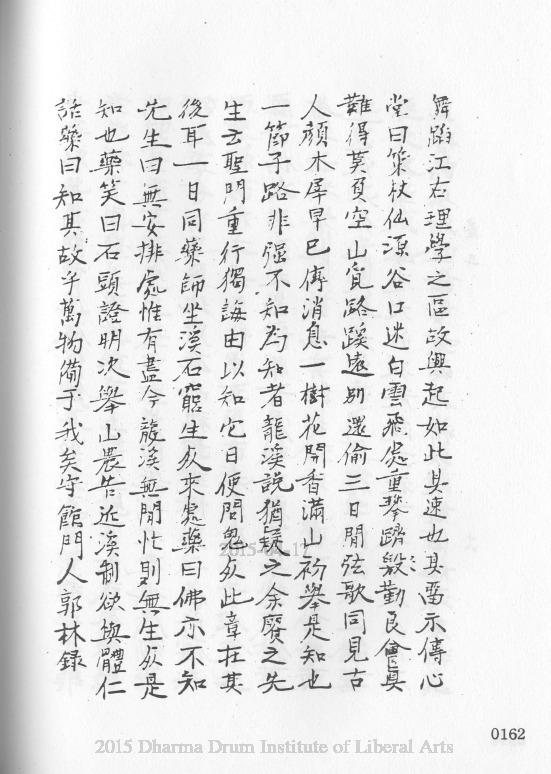 舞蹈江右理學之區故興起如此其速也其畱示傳心
堂曰策杖仙源谷口迷白雲飛處重攀躋殷勤良會真
難得莫負空山覓路蹊遠別還偷三日閒弦歌同見古
人顏木犀早已傳消息一樹花開香滿山初舉是知也
一節子路非强不知為知者龍溪說猶疑之余贊之先
生云聖門重行獨誨由以知它日便問鬼𣦸此章在其
後耳一日同藥師坐溪石窮生𣦸來處藥曰佛亦不知
先生曰無安排處惟有盡今龍溪無閒忙則無生𣦸是
知也藥笑曰石頭證明次舉山農告近溪制欲與體仁
話藥曰知其故乎萬物備于我矣守館門人郭林録
2015-04-17
0162
2015 Dharma Drum Institute of Liberal Arts